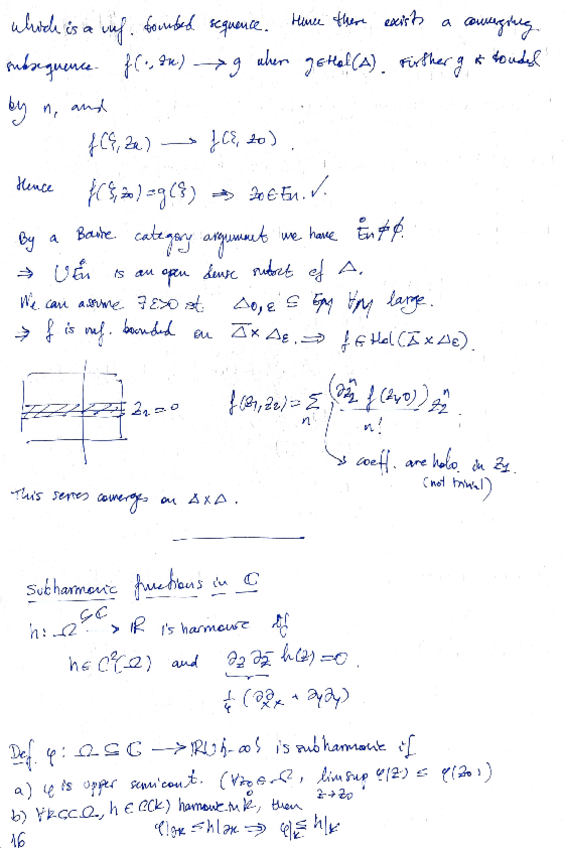 which is a unf. bounded sequence. Hence there exists a converging
subsequence. f(·, zn) → g where g∈Hol(Δ). Further g is bounded
by n, and
f(ξ, zn) → f(ξ, z0).
Hence f(ξ, z0) = g(ξ) ⇒ z0 ∈ En. ✓
By a Baire category argument we have E̊n ≠ ∅.
⇒ ∪E̊n is an open dense subset of Δ.
We can assume ∃ε>0 st Δ0,ε ⊆ EM ∀M large.
⇒ f is unf. bounded on Δ̄ × Δε. ⇒ f ∈ Hol(Δ̄ × Δε).
z2 = 0 f(z1, z2) = Σn (∂z2^n f(z1, 0)) / n! z2^n.
↳ coeff. are holo. in z1.
(not trivial)
This series converges on Δ×Δ.
Subharmonic functions in ℂ
h: Ω ⊆ ℂ → ℝ is harmonic if
h ∈ C²(Ω) and ∂z ∂z̄ h(z) = 0.
1/4 (∂x∂x + ∂y∂y)
Def. φ: Ω ⊆ ℂ → ℝ∪{-∞} is subharmonic if
a) φ is upper semicont. (∀z0 ∈ Ω, limsup z→z0 φ(z) ≤ φ(z0))
b) ∀K⊂⊂Ω, h ∈ C(K) harmonic in K̊, then
φ|∂K ≤ h|∂K ⇒ φ|K ≤ h|K
16